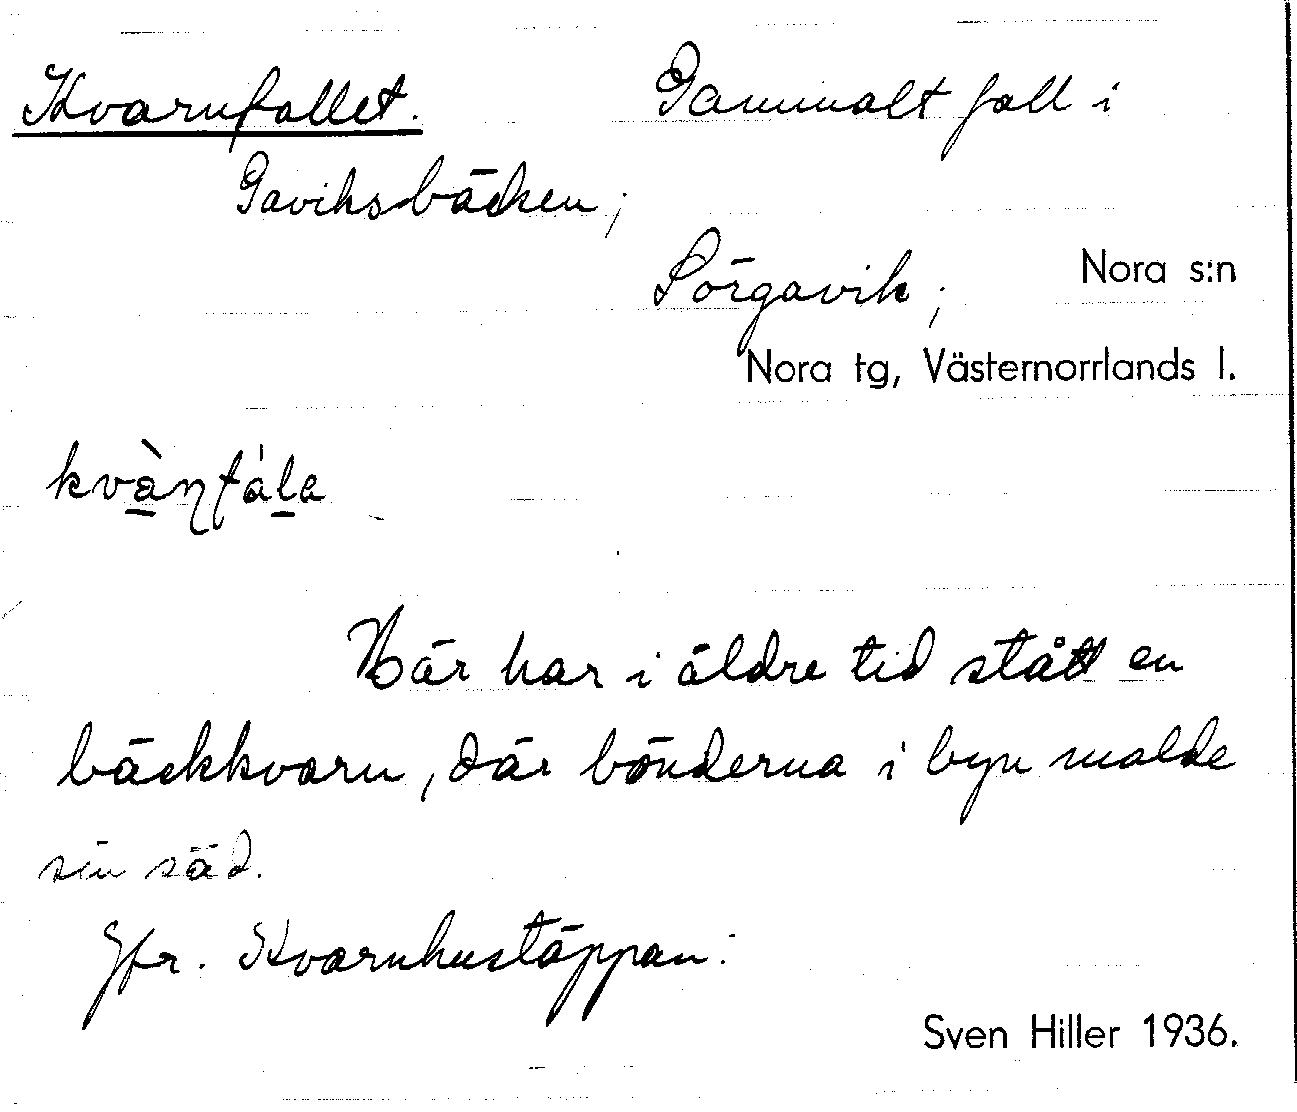 Kvarnfallet. Gammalt fall i
Gaviksbäcken;
Sörgavik; Nora s:n
Nora tg, Västernorrlands l.
kvànfála
Här har i äldre tid stått en
bäckkvarn, där bönderna i byn malde
sin säd.
Jfr. Kvarnhustäppan.
Sven Hiller 1936.